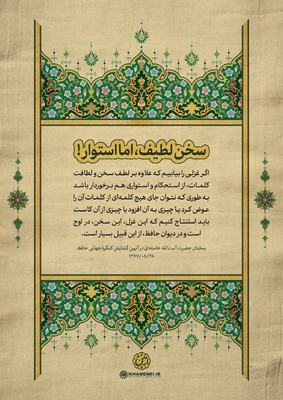 سخن لطیف، اما استوار!
اگر غزلی را بیابیم که علاوه بر لطف سخن و لطافت
کلمات، از استحکام و استواری هم برخوردار باشد
به طوری که نتوان جای هیچ کلمه‌ای از کلمات آن را
عوض کرد یا چیزی به آن افزود یا چیزی از آن کاست
باید استنتاج کنیم که این غزل، بین غزل، در اوج
است و در دیوان حافظ، از این قبیل بسیار است.
سخنان حضرت آیت‌الله خامنه‌ای در آیین گشایش کنگرهٔ جهانی حافظ
۱۳۶۷/۰۸/۲۸
KHAMENEI.IR